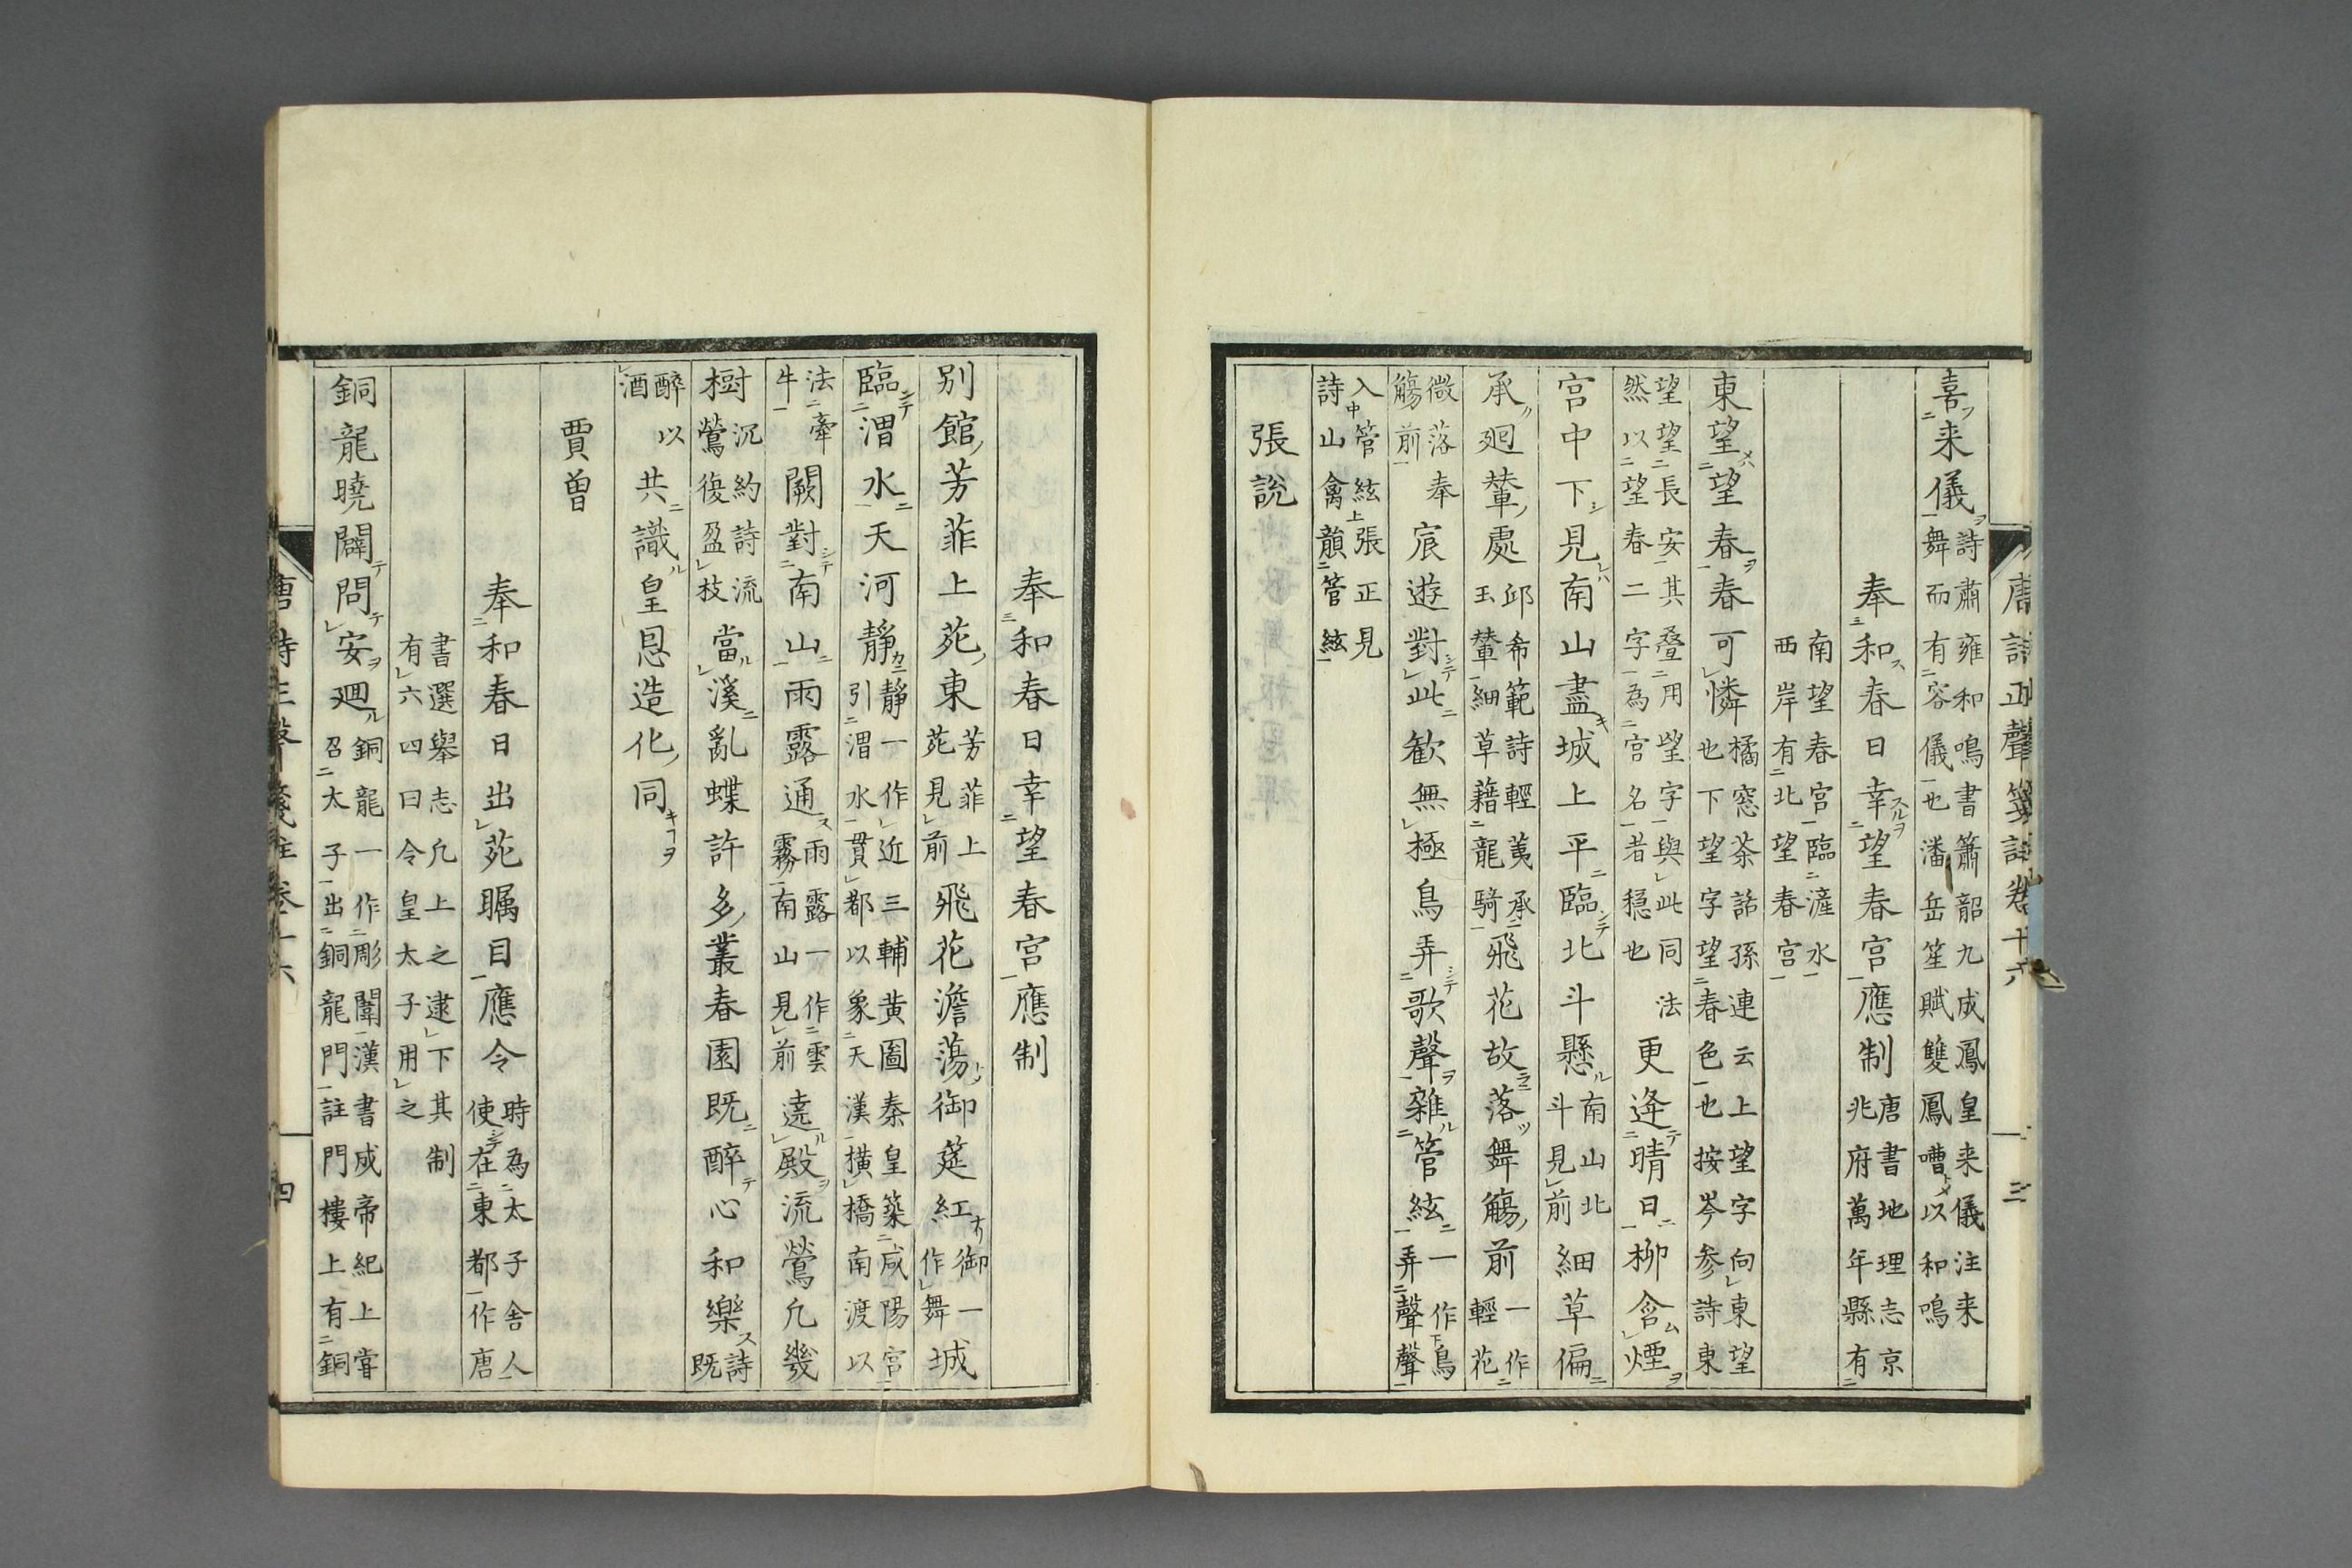 唐詩正聲箋註卷十六 三
喜来儀詩肅雍和鳴書簫韶九成鳳皇来儀注来舞而有容儀也潘岳笙賦雙鳳嘈以和鳴
奉和春日幸望春宫應制唐書地理志京兆府萬年縣有
南望春宫臨滻水西岸有北望春宫
東望望春春可憐橘窓茶話孫連云上望字向東望也下望字望春色也按岑参詩東
望望長安其疊用望字與此同法然以望春二字為宫名者穏也更逢晴日柳含煙
宫中下見南山盡城上平臨北斗懸南山北斗見前細草偏
承廻輦處邱希範詩輕荑承玉輦細草藉龍騎飛花故落舞觴前一作輕花
微落觴前奉宸遊對此歓無極鳥弄歌聲雜管絃一作鳥弄聲聲
入管絃張正見詩山禽韻管絃
張説
奉和春日幸望春宫應制
別館芳菲上苑東芳菲上苑見前飛花澹蕩御筵紅御一作舞城
臨渭水天河靜靜一作近三輔黄圖秦皇築咸陽宫引渭水貫都以象天漢横橋南渡以
法牽牛闕對南山雨露通雨露一作雲霧南山見前遶殿流鶯凡幾
樹沉約詩流鶯復盈枝當溪亂蝶許多叢春園既醉心和樂詩既
醉以酒共識皇恩造化同
賈曽
奉和春日出苑矚目應令時為太子舍人使在東都作唐
書選舉志凡上之逮下其制有六四曰令皇太子用之
銅龍曉闢問安廻銅龍一作彫闈漢書成帝紀上嘗召太子出銅龍門註門樓上有銅
唐詩正聲箋註卷十六 四